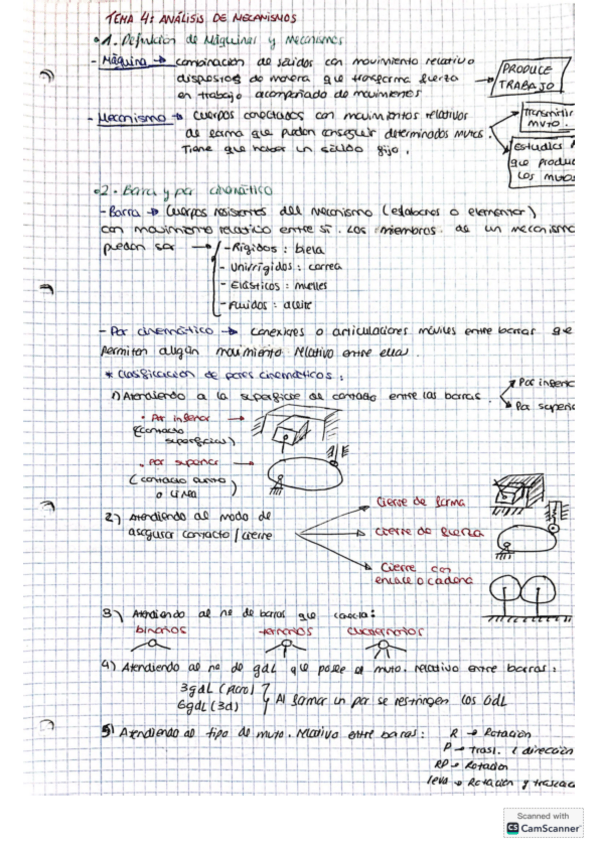 TEMA 4: ANÁLISIS DE MECANISMOS
1. Definición de Máquinas y Mecanismos
- Máquina → combinación de sólidos con movimiento relativo
dispostos de manera que transforma fuerza
en trabajo acompañado de movimientos
PRODUCE
TRABAJO
- Mecanismo → Cuerpos conectados con movimientos relativos
de forma que puedan conseguir determinados mvtos.
Tiene que haber un sólido fijo.
Transmitir
mvto.
Estudia
que produc
los mvtos
2. Barra y par cinemático
- Barra → Cuerpos resistentes del mecanismo (eslabones o elementos)
con movimiento relativo entre sí. Los miembros de un mecanismo
puedan ser → - Rígidos: biela
- Unirrígidos: correa
- Elásticos: muelles
- Fluidos: aceite
- Par cinemático → conexiones o articulaciones móviles entre barras que
permiten algún movimiento relativo entre ellas.
* Clasificación de pares cinemáticos:
1) Atendiendo a la superficie de contacto entre las barras.
Par inferio
Par superio
· Par inferior →
(contacto
superficies)
· Par superior →
(contacto punto
o línea)
2) Atendiendo al modo de
asegurar contacto/cierre
Cierre de forma
Cierre de fuerza
Cierre con
enlace o cadena
3) Atendiendo al nº de barras que conecta:
binarios ternarios cuaternarios
4) Atendiendo al nº de gdl que posee el mvto. relativo entre barras:
3gdL (plano)
6gdL (3d)
Al formar un par se restringen los GdL
5) Atendiendo al tipo de mvto. relativo entre barras: R → Rotación
P → Trasl. 1 dirección
RP → Rotación
leva → Rotación y traslac
Scanned with
CS CamScanner